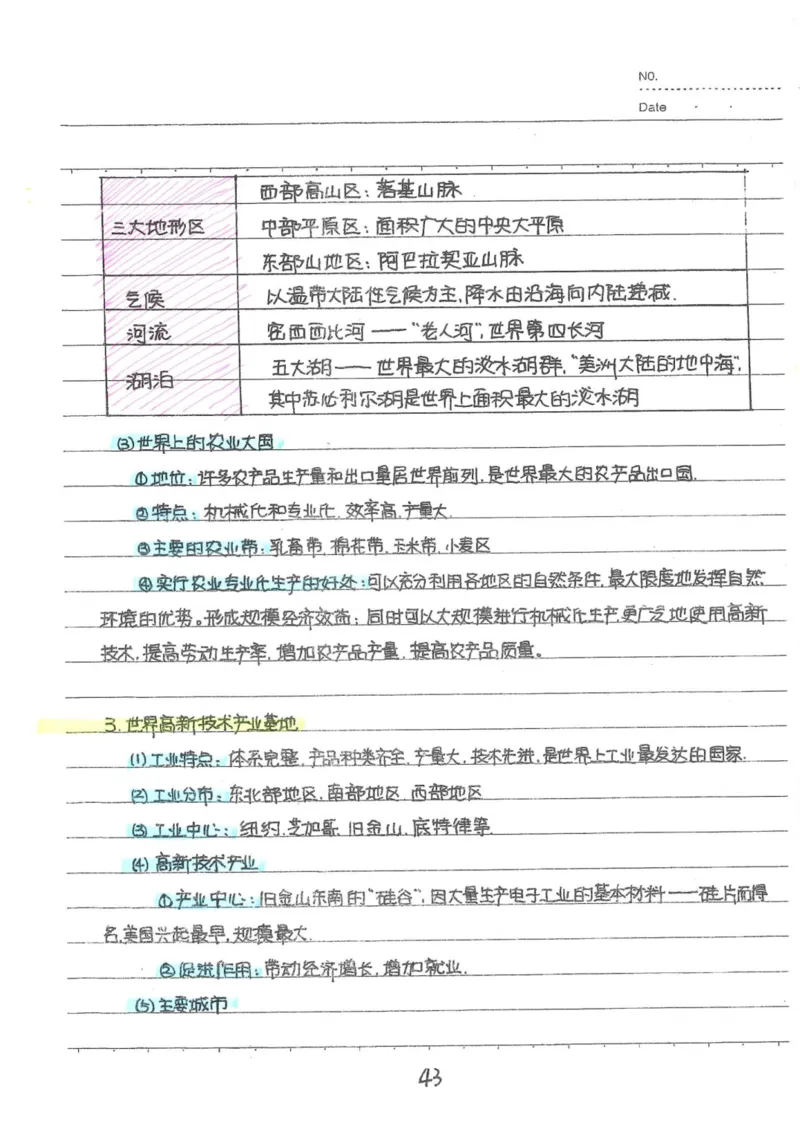 NO.
Date
西部高山区：落基山脉
三大地形区 中部平原区：面积广大的中央大平原
东部山地区：阿巴拉契亚山脉
气候 以温带大陆性气候为主,降水由沿海向内陆递减.
河流 密西西比河——“老人河”,世界第四长河
湖泊 五大湖——世界最大的淡水湖群,“美洲大陆的地中海”,
其中苏必利尔湖是世界上面积最大的淡水湖
(3)世界上的农业大国
①地位：许多农产品生产量和出口量居世界前列,是世界最大的农产品出口国.
②特点：机械化和专业化,效率高,产量大.
③主要的农业带：乳畜带,棉花带,玉米带,小麦区
④实行农业专业化生产的好处：可以充分利用各地区的自然条件,最大限度地发挥自然
环境的优势。形成规模经济效益；同时可以大规模进行机械化生产,更广泛地使用高新
技术,提高劳动生产率,增加农产品产量,提高农产品质量。
3.世界高新技术产业基地
(1)工业特点：体系完整,产品种类齐全,产量大,技术先进,是世界上工业最发达的国家.
(2)工业分布：东北部地区,南部地区,西部地区
(3)工业中心：纽约,芝加哥,旧金山,底特律等.
(4)高新技术产业
①产业中心：旧金山东南的“硅谷”,因大量生产电子工业的基本材料——硅片而得
名,美国兴起最早,规模最大.
②促进作用：带动经济增长,增加就业.
(5)主要城市
43